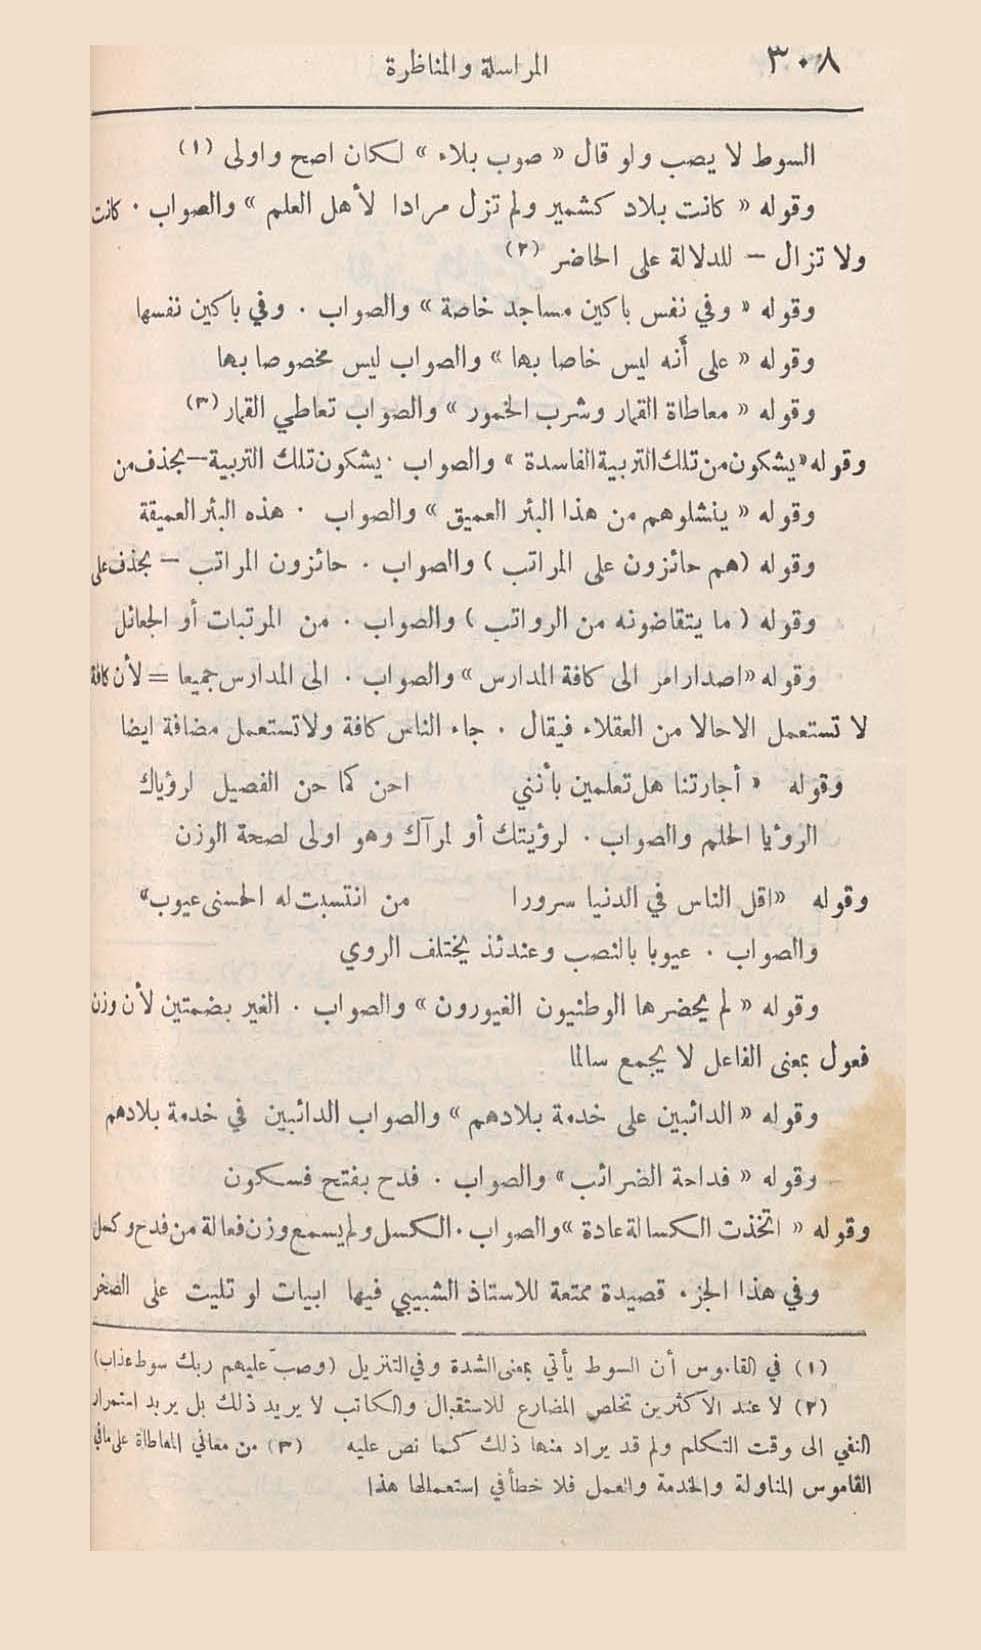 ٣٠٨
المراسلة والمناظرة
السوط لا يصب ولو قال « صوب بلاء » لكان اصح واولى (١)
وقوله « كانت بلاد كشمير ولم تزل مرادا لأهل العلم » والصواب . كانت
ولا تزال – للدلالة على الحاضر (٢)
وقوله « وفي نفس باكين مساجد خاصة » والصواب . وفي باكين نفسها
وقوله « على أنه ليس خاصا بها » والصواب ليس مخصوصا بها
وقوله « معاطاة القمار وشرب الخمور » والصواب تعاطي القمار (٣)
وقوله « يشكون من تلك التربية الفاسدة » والصواب . يشكون تلك التربية – بجذف من
وقوله « ينشلوهم من هذا البئر العميق » والصواب . هذه البئر العميقة
وقوله (هم حائزون على المراتب ) والصواب . حائزون المراتب – بجذف على
وقوله ( ما يتقاضونه من الرواتب ) والصواب . من المرتبات أو الجعائل
وقوله « اصدار امر الى كافة المدارس » والصواب . الى المدارس جميعا = لأن كافة
لا تستعمل الا حالا من العقلاء فيقال . جاء الناس كافة ولا تستعمل مضافة ايضا
وقوله « أجارتنا هل تعلمين بأنني احن كما حن الفصيل لرؤياك
الرؤيا الحلم والصواب . لرؤيتك أو لمرآك وهو اولى لصحة الوزن
وقوله « اقل الناس في الدنيا سرورا من انتسبت له الحسنى عيوب »
والصواب . عيوبا بالنصب وعندئذ يختلف الروي
وقوله « لم يحضرها الوطنيون الغيورون » والصواب . الغير بضمتين لأن وزن
فعول بمعنى الفاعل لا يجمع سالما
وقوله « الدائبين على خدمة بلادهم » والصواب الدائبين في خدمة بلادهم
وقوله « فداحة الضرائب » والصواب . فدح بفتح فسكون
وقوله « اتخذت الكسالة عادة » والصواب . الكسل ولم يسمع وزن فعالة من فدح وكسل
وفي هذا الجزء قصيدة ممتعة للاستاذ الشبيبي فيها ابيات لو تليت على الصخر
(١) في القاموس أن السوط يأتي بمعنى الشدة وفي التنزيل (وصبّ عليهم ربك سوط عذاب)
(٢) لا عند الأكثرين تخلص المضارع للاستقبال والكاتب لا يريد ذلك بل يريد استمرار
النفي الى وقت التكلم ولم قد يراد منها ذلك كما نص عليه (٣) من معاني المعاطاة على ما في
القاموس المناولة والخدمة والعمل فلا خطأ في استعمالها هذا